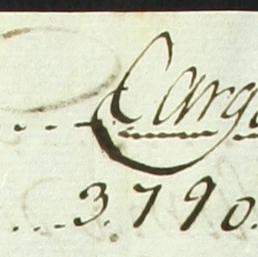 Cargo
3.790.